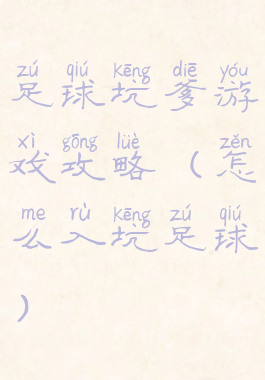 zú qiú kēng diē yóu
足球坑爹游
xì gōng lüè zěn
戏攻略（怎
me rù kēng zú qiú
么入坑足球
）